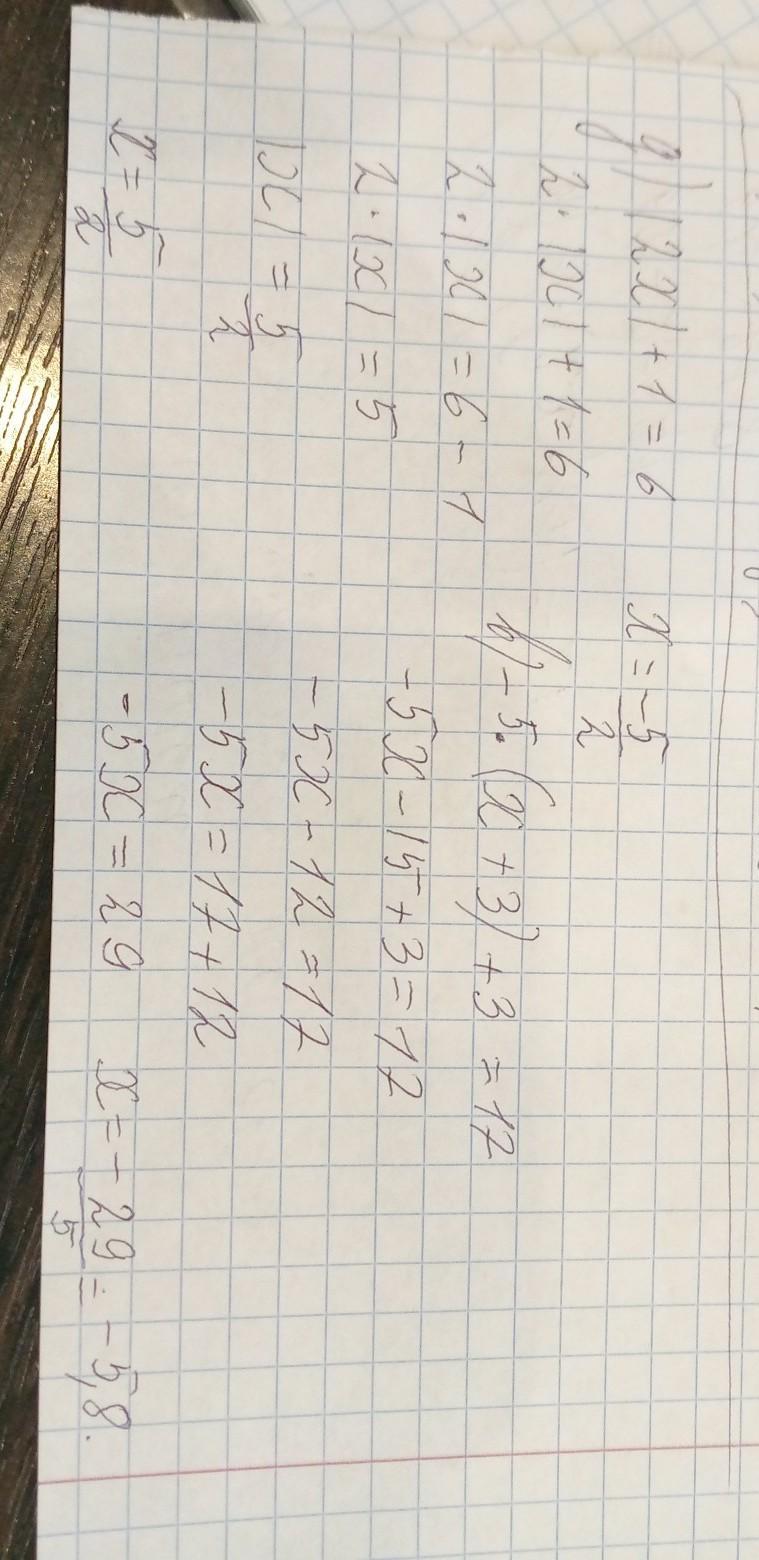 д) |2x| + 1 = 6
2·|x| + 1 = 6
2·|x| = 6 - 1
2·|x| = 5
|x| = 5/2
x = 5/2
x = -5/2
в) -5·(x + 3) + 3 = 17
-5x - 15 + 3 = 17
-5x - 12 = 17
-5x = 17 + 12
-5x = 29
x = -29/5 = -5,8.